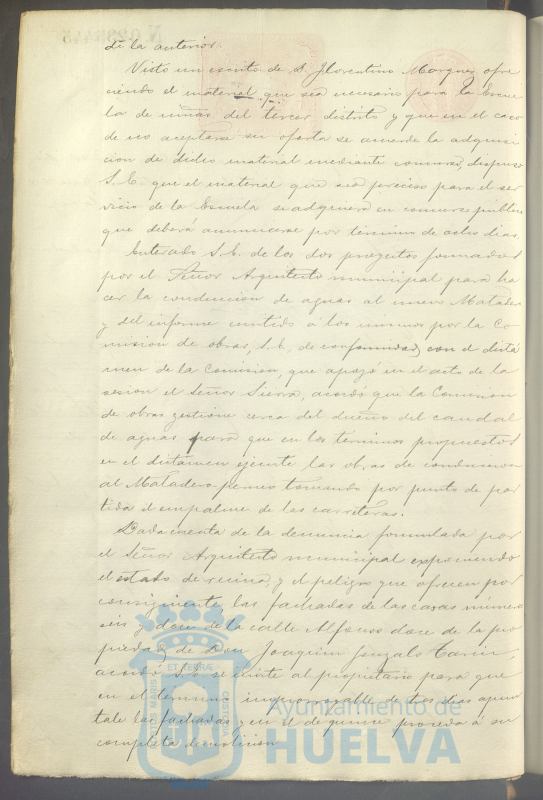 de la anterior.
Visto un escrito de D. Florentino Marquez ofre
ciendo el material que sea necesario para la Escue
la de niñas del tercer distrito y que en el caso
de no aceptarse su oferta se acuerde la adquisi
cion de dicho material mediante concurso, dispuso
S.E. que el material que sea preciso para el ser
vicio de la Escuela se adquiera en concurso público
que deberá anunciarse por término de ocho dias.
Enterado S.E. de los dos proyectos formados
por el Señor Arquitecto municipal para ha
cer la conduccion de aguas al nuevo Matadero
y del informe emitido á los mismos por la Co
mision de obras, S.E. de conformidad con el dictá
men de la Comision, que apoyó en el acto de la
sesion el Señor Sierra, acordó que la Comision
de obras gestione cerca del dueño del caudal
de aguas para que en los términos propuestos
en el dictámen ejecute las obras de conduccion
al Matadero nuevo tomando por punto de par
tida el empalme de las carreteras.
Dada cuenta de la denuncia formulada por
el Señor Arquitecto municipal exponiendo
el estado de ruina, y el peligro que ofrecen por
consiguiente, las fachadas de las casas número
seis y doce de la calle Alfonso doce de la pro
piedad de Don Joaquin Gonzalo
acordó S.E. se cite al propietario para que
en el termino improrrogable de tres dias apun
tale las fachadas y en el de quince proceda á su
completa demolicion
Ayuntamiento de
HUELVA